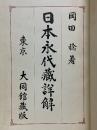 岡田稔著
日本永代蔵詳解
東京 大同館蔵版